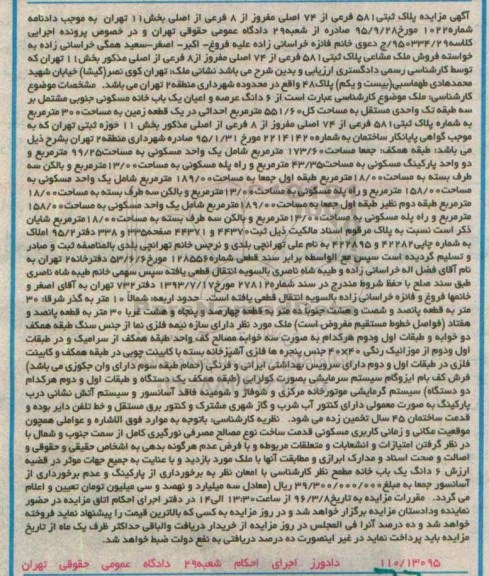 آگهی مزایده پلاک ثبتی۵۸۱ فرعی از ۷۴ اصلی مفروز از ۸ فرعی از اصلی بخش۱۱ تهران به موجب دادنامه
شماره۱۰۲۲ مورخ۹۵/۹/۲۸ صادره از شعبه۲۹ دادگاه عمومی حقوقی تهران و در خصوص پرونده اجرایی
کلاسه۹۵۰۳۳۴/۲۹ج دعوی خانم فائزه خراسانی زاده علیه فروغ- اکبر- اصغر-سعید همگی خراسانی زاده به
خواسته فروش ملک مشاعی پلاک ثبتی۵۸۱ فرعی از ۷۴ اصلی مفروز از۸ فرعی از اصلی مذکور بخش۱۱ تهران که
توسط کارشناس رسمی دادگستری ارزیابی و بدین شرح می باشد نشانی ملک: تهران کوی نصر(گیشا) خیابان شهید
محمدهادی طهماسبی(بیست و یکم) پلاک۴۸ واقع در محدوده شهرداری منطقه۲ تهران می باشد. مشخصات موضوع
کارشناسی: ملک موضوع کارشناسی عبارت است از ۶ دانگ عرصه و اعیان یک باب خانه مسکونی جنوبی مشتمل بر
سه طبقه تک واحدی مستقل به مساحت کل ۵۵۱/۶۰ مترمربع احداثی در یک قطعه زمین به مساحت۳۰۰ مترمربع
به شماره پلاک ثبتی۵۸۱ فرعی از ۷۴ اصلی مفروز از ۸ فرعی از اصلی مذکور بخش ۱۱ حوزه ثبتی تهران که به
موجب گواهی پایانکار ساختمان به شماره۲۲۱۴۱۴۲۰ مورخ ۹۵/۱۲/۳۱ صادره شهرداری منطقه۲ تهران بشرح ذیل
می باشد: طبقه همکف: جمعا مساحت۱۷۳/۶۰ مترمربع شامل یک واحد مسکونی به مساحت۹۹/۲۵ مترمربع و
دو واحد پارکینگ مسکونی به مساحت۴۳/۳۵ مترمربع و راه پله مسکونی به مساحت۱۳/۰۰ مترمربع و بالکن سه
طرف بسته به مساحت۱۸/۰۰ مترمربع طبقه اول جمعا به مساحت ۱۸۹/۰۰ مترمربع شامل یک واحد مسکونی به
مساحت۱۵۸/۰۰ مترمربع و راه پله مسکونی به مساحت۱۳/۰۰مترمربع و بالکن سه طرف بسته به مساحت۱۸/۰۰
مترمربع طبقه دوم نظیر طبقه اول جمعا به مساحت۱۸۹/۰۰مترمربع شامل یک واحد مسکونی به مساحت۱۵۸/۰۰
مترمربع و راه پله مسکونی به مساحت۱۳/۰۰مترمربع و بالکن سه طرف بسته به مساحت۱۸/۰۰مترمربع شایان
ذکر است نسبت به پلاک مرقوم اسناد مالکیت ذیل ثبت۴۴۳۷۰ و ۴۴۳۷۱ صفحه۳۳۵ و ۳۳۸ دفتر۹۵/۲ املاک
به شماره چاپی۴۲۲۸۲ و ۴۲۲۸۹۵ به نام علی تهرانچی بلدی و نرجس خانم تهرانچی بلدی بالمناصفه ثبت و صادر
و تسلیم گردیده است سپس مع الواسطه برابر سند قطعی شماره۱۲۸۵۵۶ مورخ ۵۳/۶/۶ دفترخانه۲ تهران به
نام آقای فضل اله خراسانی زاده و طیبه شاه ناصری بالسویه انتقال قطعی یافته سپس سهمی خانم طیبه شاه ناصری
طبق سند صلح با حفظ شروط مندرج در سند شماره۲۷۸۱۲ مورخ۱۳۹۳/۷/۱۷ دفتر۷۳۲ تهران به آقای اصغر و
خانمها فروغ و فائزه خراسانی زاده بالسویه انتقال قطعی یافته است. حدود اربعه: شمالاً ۱۰ متر به گذر شرقا: ۳۰
متر به قطعه پانصد و شصت و هشت جنوبا ده متر به قطعه چهارصد و پنجاه و هشت غربا ۳۰ متر به قطعه پانصد و
هفتاد (فواصل خطوط مستقیم مفروض است) ملک مورد نظر دارای سازه نیمه فلزی نما از جنس سنگ طبقه همکف
دو خوابه و طبقات اول ودوم هرکدام به صورت سه خوابه مصالح کف واحد طبقه همکف از سرامیک و در طبقات
اول ودوم از موزائیک رنگی ۴۰×۴۰ جنس پنجره ها فلزی آشپزخانه بسته با کابینت چوبی در طبقه همکف و کابینت
فلزی در طبقات اول و دوم دارای سرویس بهداشتی ایرانی و فرنگی (حمام طبقه سوم دارای وان جکوزی می باشد)
فرش کف بام ایزوگام سیستم سرمایشی بصورت کولرآبی (طبقه همکف یک دستگاه و طبقات اول و دوم هرکدام
دو دستگاه) سیستم گرمایشی موتورخانه مرکزی و شوفاژ و شومینه فاقد آسانسور و سیستم آتش نشانی درب
پارکینگ به صورت معمولی دارای کنتور آب شرب و گاز شهری مشترک و کنتور برق مستقل و خط تلفن دایر بوده و
قدمت ساختمان ۴۵ سال تخمین زده می شود. نظریه کارشناسی: باتوجه به موارد فوق الاشاره و عواملی همچون
موقعیت مکانی و زمانی کاربری مسکونی قدمت ساخت نوع مصالح مصرفی نورگیری کامل از سمت جنوب و شمال با
در نظر گرفتن امتیازات و انشعابات و متعلقات مربوطه و با فرض عدم هرگونه بدهی به اشخاص حقیقی و حقوقی و
اصالت و صحت اسناد و مدارک ابرازی و مطابقت آنها با ملک مورد بازدید و با عنایت به جمیع جهات موثر در قضیه
ارزش ۶ دانگ یک باب خانه مطمح نظر کارشناسی با امعان نظر به برخورداری از پارکینگ و عدم برخورداری از
آسانسور جمعا به مبلغ۳۹/۳۰۰/۰۰۰/۰۰۰ ریال (معادل سه میلیارد و نهصد و سی میلیون تومان تعیین و اعلام
می گردد. مقررات مزایده به تاریخ۹۶/۳/۸ از ساعت۱۳:۳۰ الی۱۴ در دفتر اجرای احکام اتاق مزایده در حضور
نماینده ودادستان مزایده برگزار خواهد شد و در روز مزایده به کسی که بالاترین قیمت را پیشنهاد نماید فروخته
خواهد شد و ده درصد آنرا فی المجلس در روز مزایده از خریدار دریافت والباقی حداکثر ظرف یک ماه از تاریخ
مزایده باید پرداخت نماید در غیر اینصورت ده درصد دریافتی به نفع دولت ضبط خواهد شد.
۱۱۰/۱۳۰۹۵ دادورز اجرای احکام شعبه۲۹ دادگاه عمومی حقوقی تهران